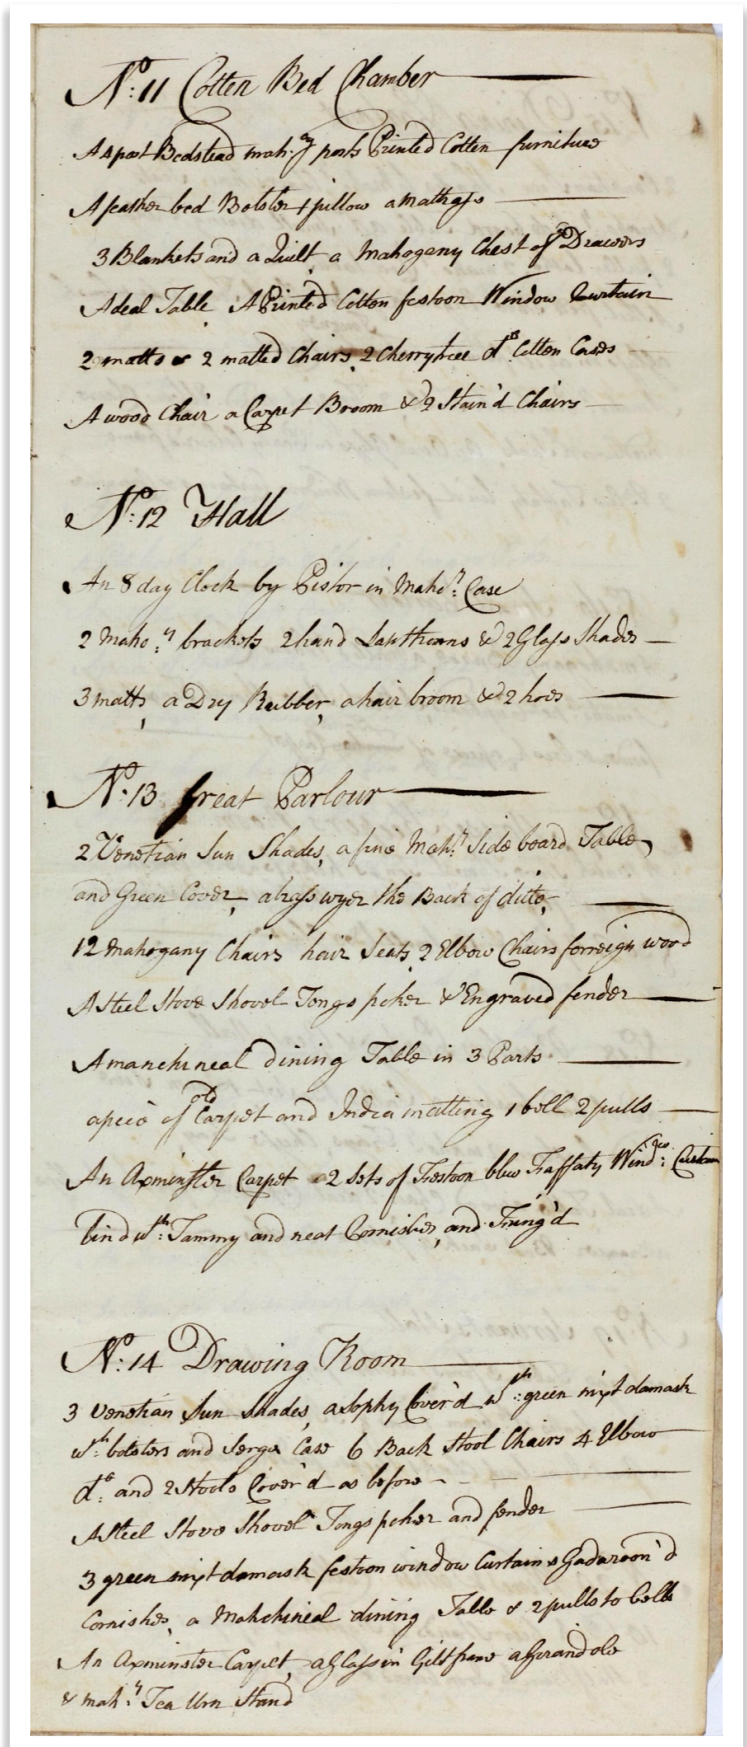 No: 11 Cotten Bed Chamber
A 4 post Bedstead mah:gy posts Printed Cotten furniture
A feather bed Bolster 1 pillow a mattrass
3 Blankets and a Quilt, a Mahogeny Chest of Drawers
A deal Table, A Printed Cotton festoon Window Curtain
2 matts & 2 matted Chairs, 2 Cherrytree do Cotten Cases
A wood Chair a Carpet Broom & 2 Stain'd Chairs
No: 12 Hall
An 8 day Clock by Pistor in Maho:y Case
2 Maho:y brackets 2 hand Lanthorns & 2 Glass Shades
3 matts, a Dry Rubber, a hair broom & 2 hoes
No: 13 Great Parlour
2 Venetian Sun Shades, a fine Mah:y Side board Table,
and Green Cover, a brass wyer the Back of ditto,
12 Mahogany Chairs hair Seats, 2 Elbow Chairs forreign wood
A Steel Stove Shovel Tongs poker & Engraved fender
A manchineal dining Table in 3 Parts
a piece of old Carpet and India matting 1 bell 2 pulls
An Axminster Carpet 2 Sets of Festoon blue Taffaty Windo: Curtain
lin'd wth: Tammy and neat Cornishes, and Fring'd
No: 14 Drawing Room
3 Venetian Sun Shades, a Sophy Cover'd wth: green mixt damask
wth: bolsters and Serge Case 6 Back Stool Chairs 4 Elbow
do: and 2 Stools Cover'd as before
A Steel Stove Shovel Tongs poker and fender
3 green mixt damask festoon window Curtains Gadaroon'd
Cornishes, a Mahchineal dining Table & 2 pulls to bells
An Axminster Carpet, a Glass in Gilt frame a Gerandole
& mah:y Tea Urn Stand